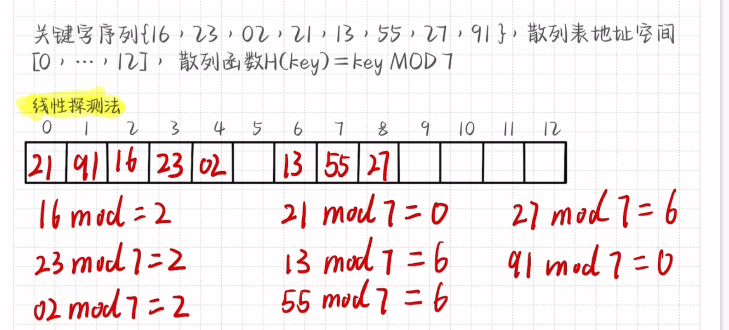 关键字序列{16，23，02，21，13，55，27，91}，散列表地址空间
[0，…，12]，散列函数H(key)=key MOD 7
线性探测法
0 1 2 3 4 5 6 7 8 9 10 11 12
21 91 16 23 02 13 55 27
16 mod = 2 21 mod 7 = 0 27 mod 7 = 6
23 mod 7 = 2 13 mod 7 = 6 91 mod 7 = 0
02 mod 7 = 2 55 mod 7 = 6